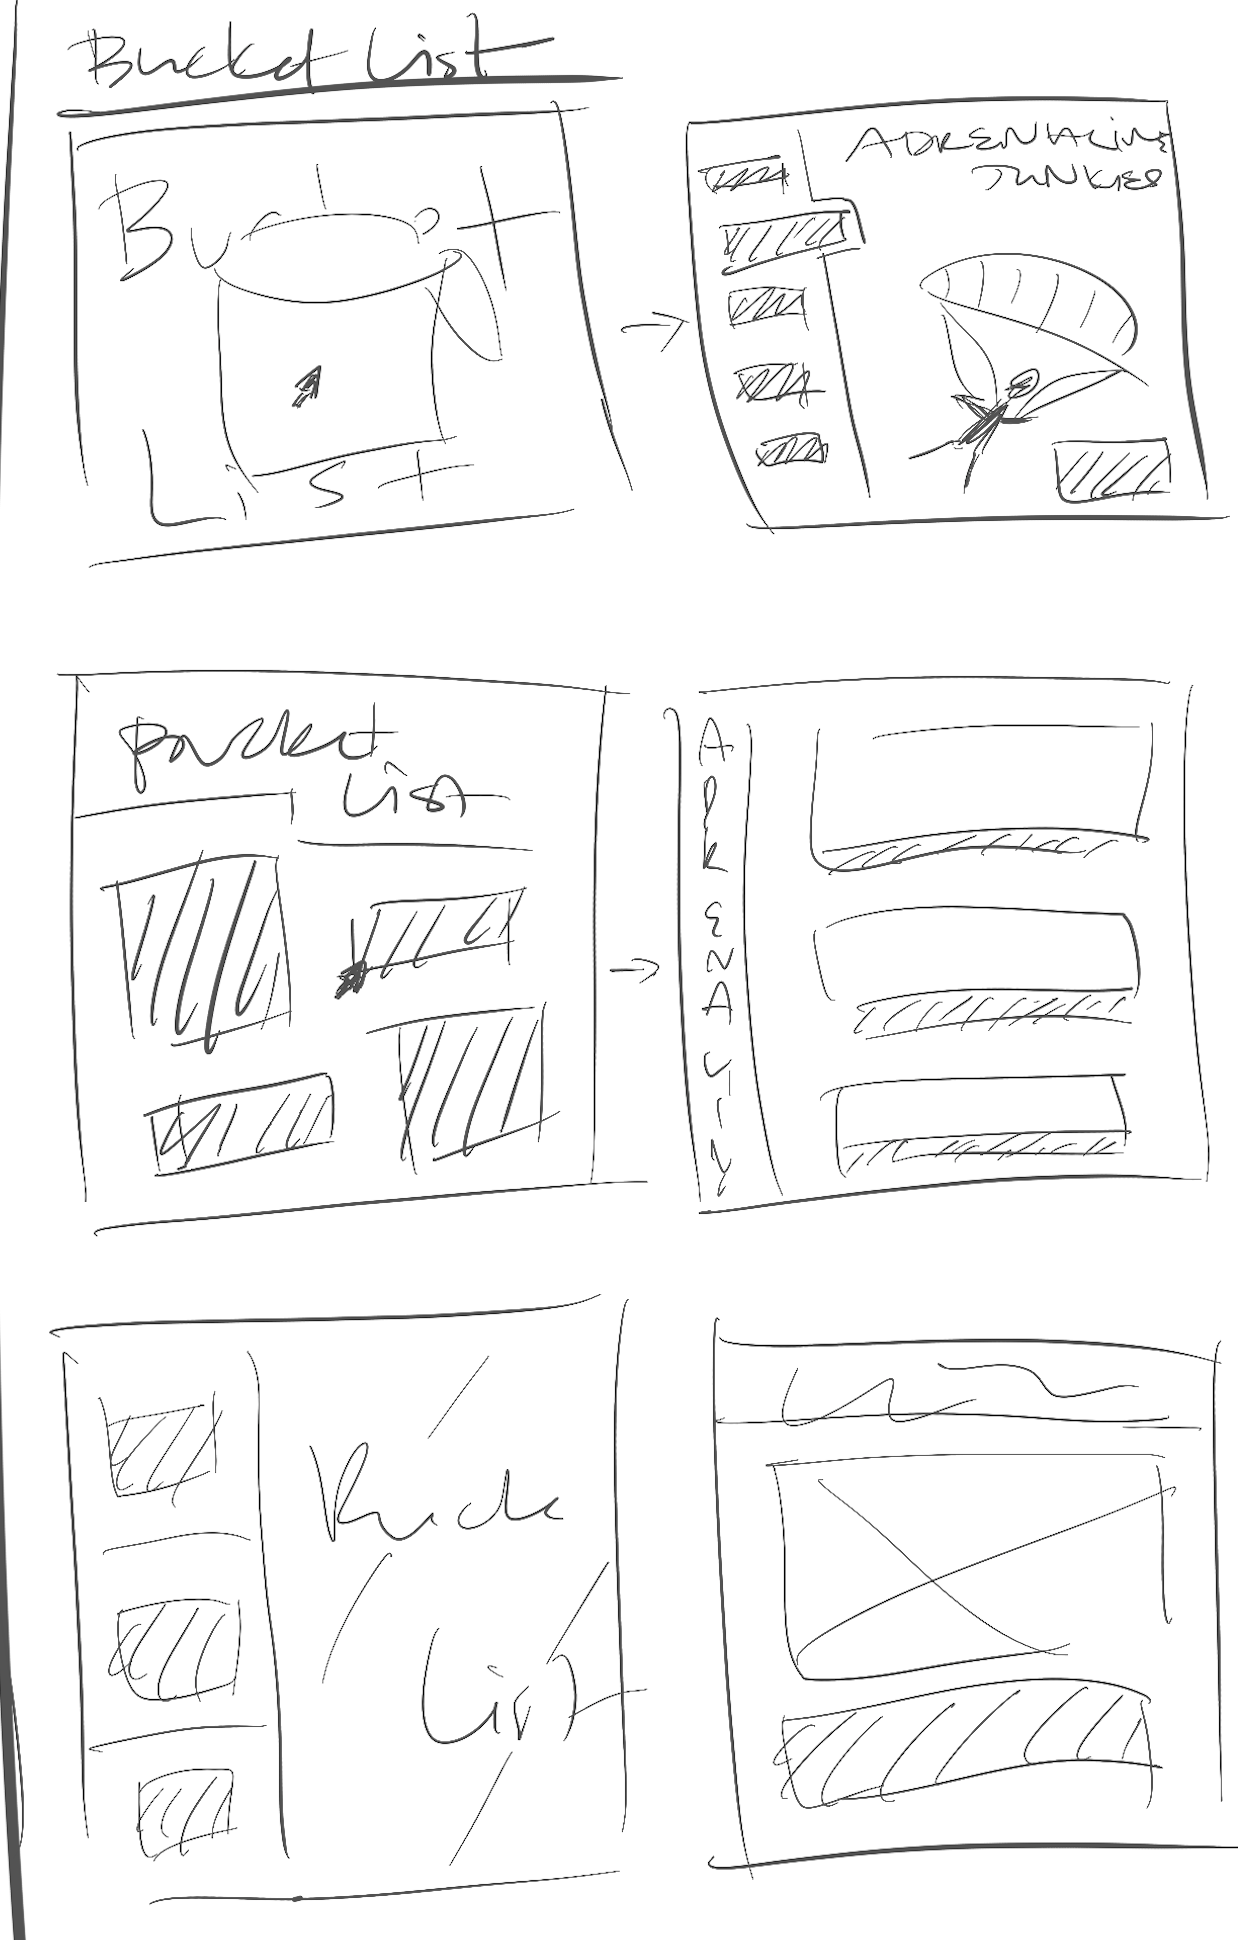 Bucket List
Bu t
List
ADRENALINE
JUNKIES
Bucket
List
ADRENALIN
Buck
List